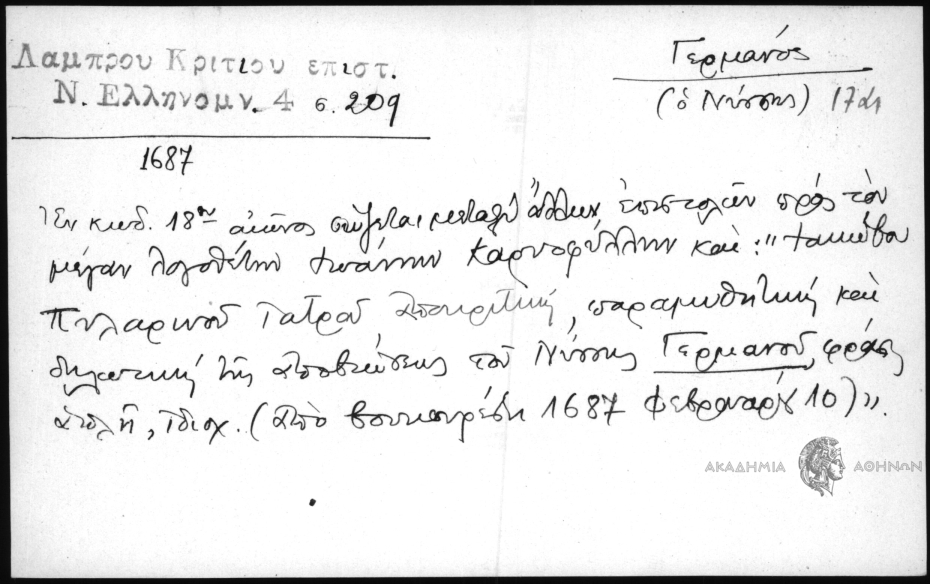 Λαμπρου Κριτιου επιστ.
Ν. Ελληνομν. 4 σ. 209
Γερμανός
(ὁ Νύσσης) 17 αἰ
1687
Ἐν κωδ. 18ου αἰῶνος σώζεται μεταξὺ ἄλλων ἐπιστολῶν πρὸς τὸν
μέγαν λογοθέτην Ἰωάννην Καρυοφύλλην καὶ: "Ἰακώβου
Πυλαρινοῦ Ἰατροῦ ἀποκριτική, παραμυθητικὴ καὶ
δηλωτικὴ τῆς ἀποβιώσεως τοῦ Νύσσης Γερμανοῦ, φράσις
ἁπλῆ, ἰδιοχ. (ἀπὸ Βουκουρέστι 1687 Φεβρουαρίου 10)".
ΑΚΑΔΗΜΙΑ ΑΘΗΝΩΝ